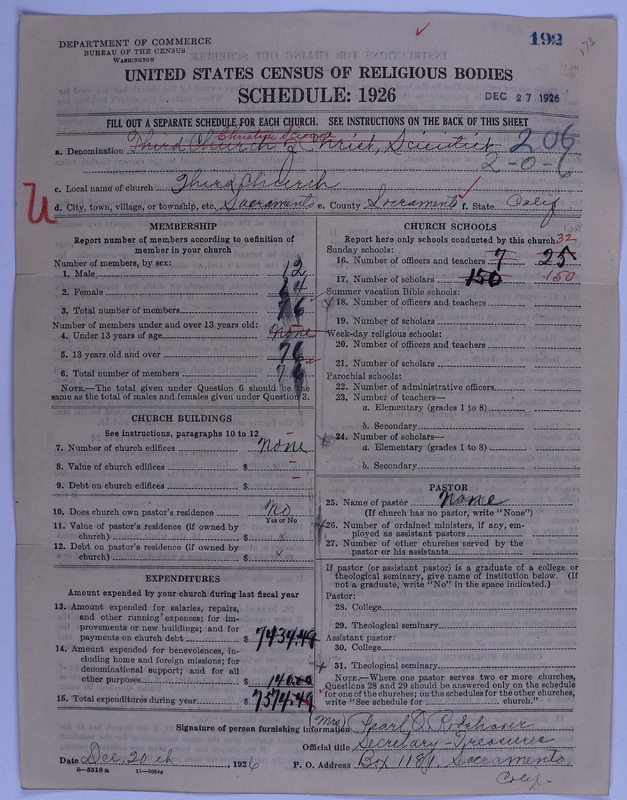 192
DEPARTMENT OF COMMERCE
BUREAU OF THE CENSUS
WASHINGTON
UNITED STATES CENSUS OF RELIGIOUS BODIES
SCHEDULE: 1926
DEC 27 1926
FILL OUT A SEPARATE SCHEDULE FOR EACH CHURCH. SEE INSTRUCTIONS ON THE BACK OF THIS SHEET
Christian Science
a. Denomination Third Church of Christ, Scientist 206
2-0-6
c. Local name of church Third Church
d. City, town, village, or township, etc. Sacramento e. County Sacramento f. State Calif
MEMBERSHIP
Report number of members according to definition of
member in your church
Number of members, by sex:
1. Male 12
2. Female 64
3. Total number of members 76
Number of members under and over 13 years old:
4. Under 13 years of age None
5. 13 years old and over 76
6. Total number of members 76
NOTE.—The total given under Question 6 should be the
same as the total of males and females given under Question 3.
CHURCH BUILDINGS
See instructions, paragraphs 10 to 12
7. Number of church edifices None
8. Value of church edifices $
9. Debt on church edifices $
10. Does church own pastor's residence No
Yes or No
11. Value of pastor's residence (if owned by
church) $ x
12. Debt on pastor's residence (if owned by
church) $ x
EXPENDITURES
Amount expended by your church during last fiscal year
13. Amount expended for salaries, repairs,
and other running expenses; for im-
provements or new buildings; and for
payments on church debt $ 7434.49
14. Amount expended for benevolences, in-
cluding home and foreign missions; for
denominational support; and for all
other purposes $ 140.00
15. Total expenditures during year $ 7574.49
CHURCH SCHOOLS
Report here only schools conducted by this church
32
Sunday schools:
16. Number of officers and teachers 7 25
17. Number of scholars 150 150
Summer vacation Bible schools:
18. Number of officers and teachers
19. Number of scholars
Week-day religious schools:
20. Number of officers and teachers
21. Number of scholars
Parochial schools:
22. Number of administrative officers
23. Number of teachers—
a. Elementary (grades 1 to 8)
b. Secondary
24. Number of scholars—
a. Elementary (grades 1 to 8)
b. Secondary
PASTOR
25. Name of pastor None
(If church has no pastor, write "None")
26. Number of ordained ministers, if any, em-
ployed as assistant pastors
27. Number of other churches served by the
pastor or his assistants
If pastor (or assistant pastor) is a graduate of a college or
theological seminary, give name of institution below. (If
not a graduate, write "No" in the space indicated.)
Pastor:
28. College
29. Theological seminary
Assistant pastor:
30. College
31. Theological seminary
NOTE.—Where one pastor serves two or more churches,
Questions 28 and 29 should be answered only on the schedule
for one of the churches; on the schedules for the other churches,
write "See schedule for church."
Signature of person furnishing information (Mrs) Pearl
Official title Secretary-Treasurer
Date Dec. 20th, 1926 P. O. Address Box 1189, Sacramento,
Calif.
8-5518a 11-9054a